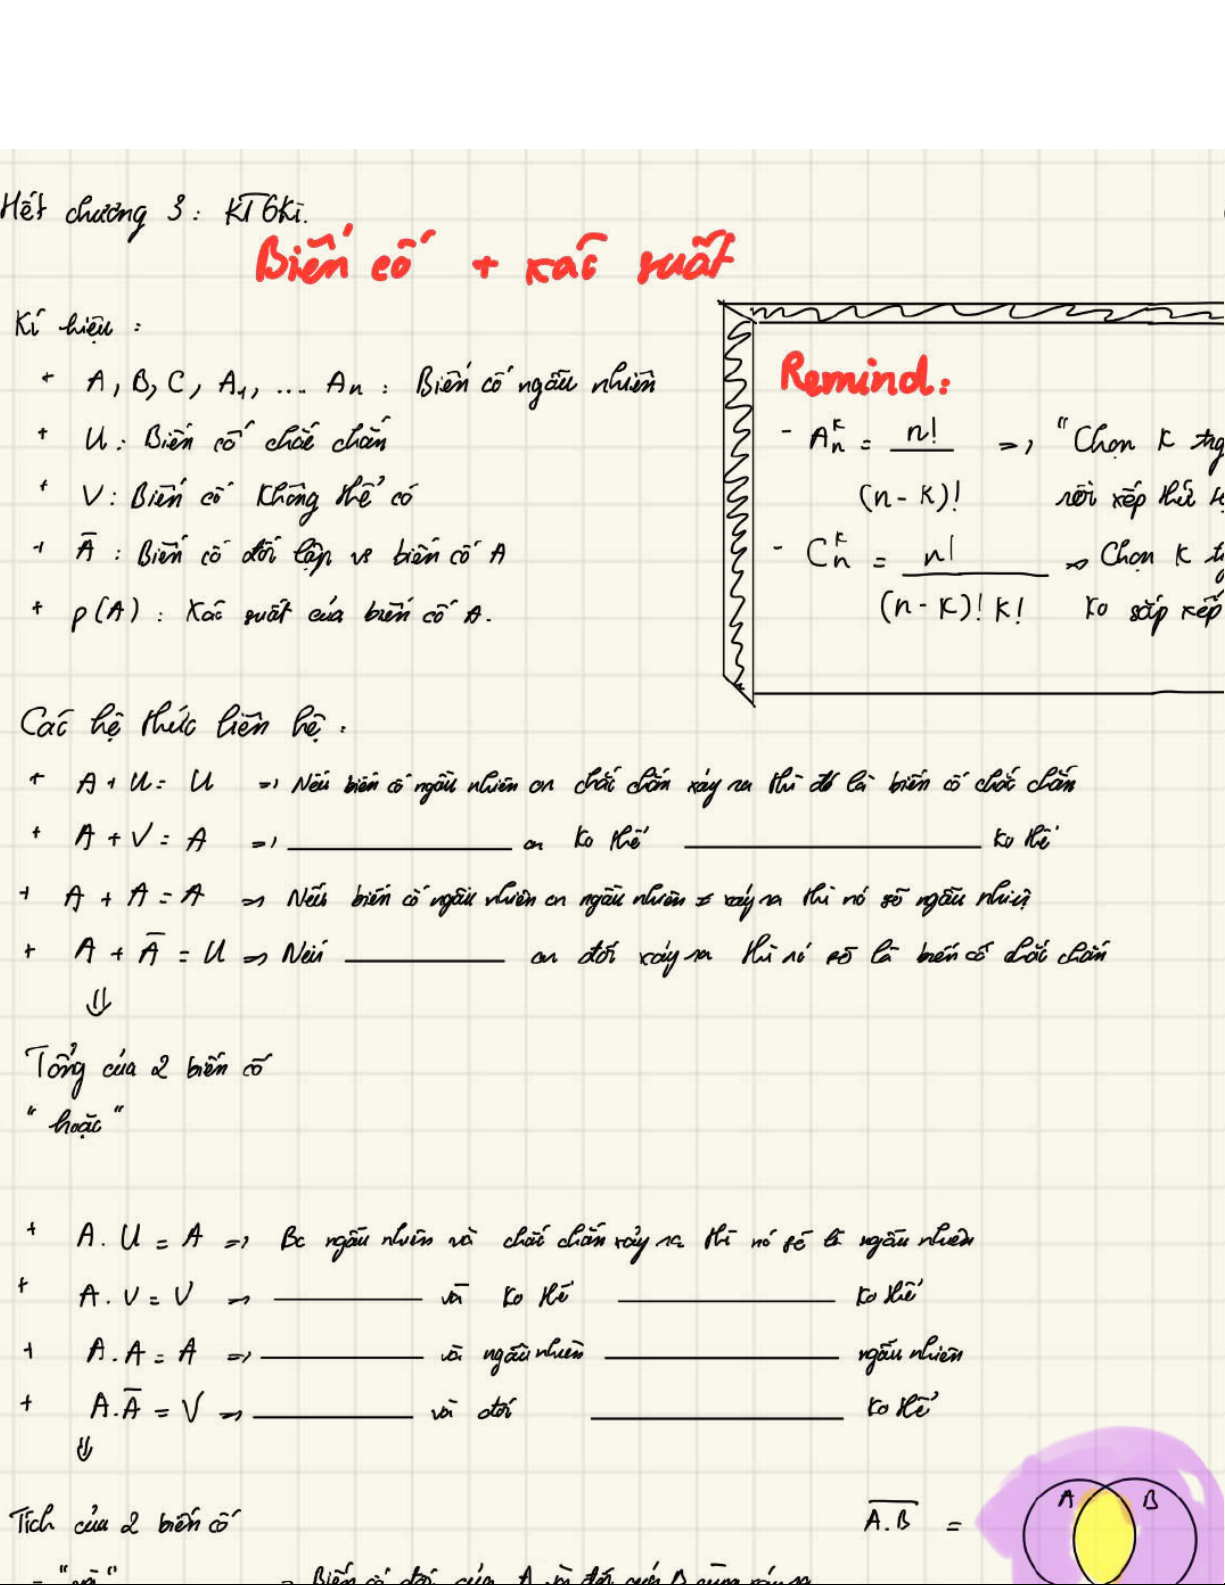 Hết chương 3: KT GKì.
Biến cố + xác suất
Kí hiệu :
+ A, B, C, A₁, ... An : Biến cố ngẫu nhiên
+ U : Biến cố chắc chắn
+ V : Biến cố không thể có
+ Ā : Biến cố đối lập vs biến cố A
+ p(A) : Xác suất của biến cố A.
Remind:
- Aₙᵏ = n! / (n - k)! => "Chọn k trg
rồi xếp thứ
- Cₙᵏ = n! / (n - k)! k! => Chọn k
ko sắp xếp
Các hệ thức liên hệ :
+ A + U = U => Nếu biến cố ngẫu nhiên or chắc chắn xảy ra thì đó là biến cố chắc chắn
+ A + V = A => ______ or ko thể ______ ko thể
+ A + A = A => Nếu biến cố ngẫu nhiên or ngẫu nhiên xảy ra thì nó sẽ ngẫu nhiên
+ A + Ā = U => Nếu ______ or đối xảy ra thì nó sẽ là biến cố chắc chắn
⇓
Tổng của 2 biến cố
"hoặc"
+ A. U = A => Bc ngẫu nhiên và chắc chắn xảy ra thì nó sẽ là ngẫu nhiên
+ A. V = V => ______ và ko thể ______ ko thể
+ A. A = A => ______ và ngẫu nhiên ______ ngẫu nhiên
+ A. Ā = V => ______ và đối ______ ko thể
⇓
Tích của 2 biến cố
A̅.̅B̅ =
A B
= "và"
= Biến cố đối của A và đối của B cùng xảy ra